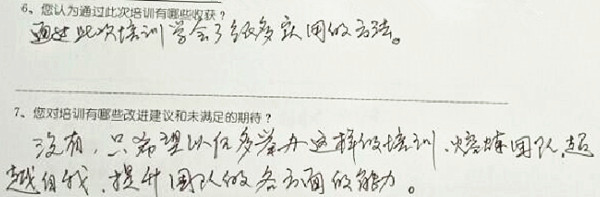 6、您认为通过此次培训有哪些收获？
通过此次培训学会了很多实用的方法。
7、您对培训有哪些改进建议和未满足的期待？
没有，只希望以后多举办这样的培训、熔炼团队，超
越自我，提升团队的各方面的能力。